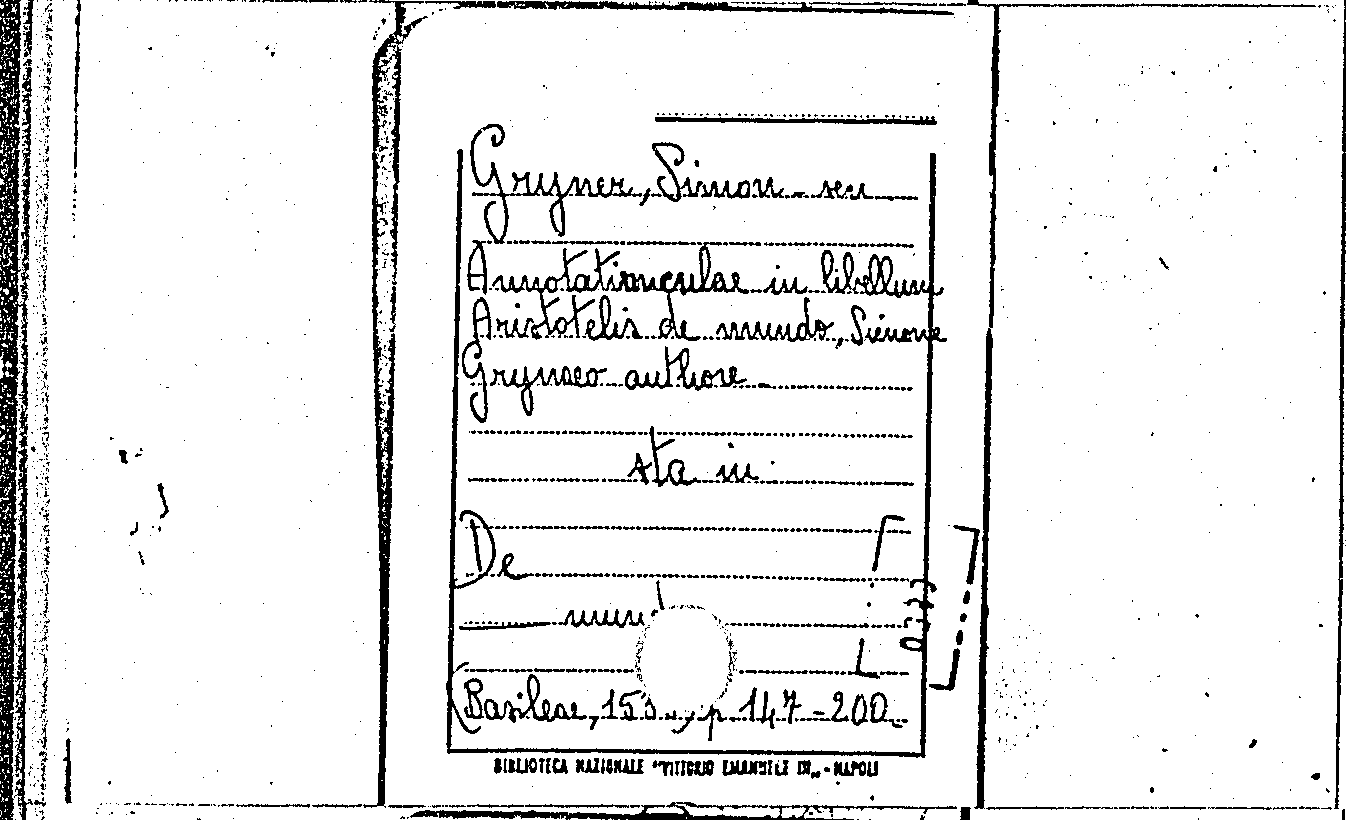 Gryner, Simon - seu
Annotatiunculae in libellum
Aristotelis de mundo, Simone
Grynaeo authore -
sta in
De
mun
(Basileae, 153 , p 147 - 200
BIBLIOTECA NAZIONALE "VITTORIO EMANUELE III„ - NAPOLI